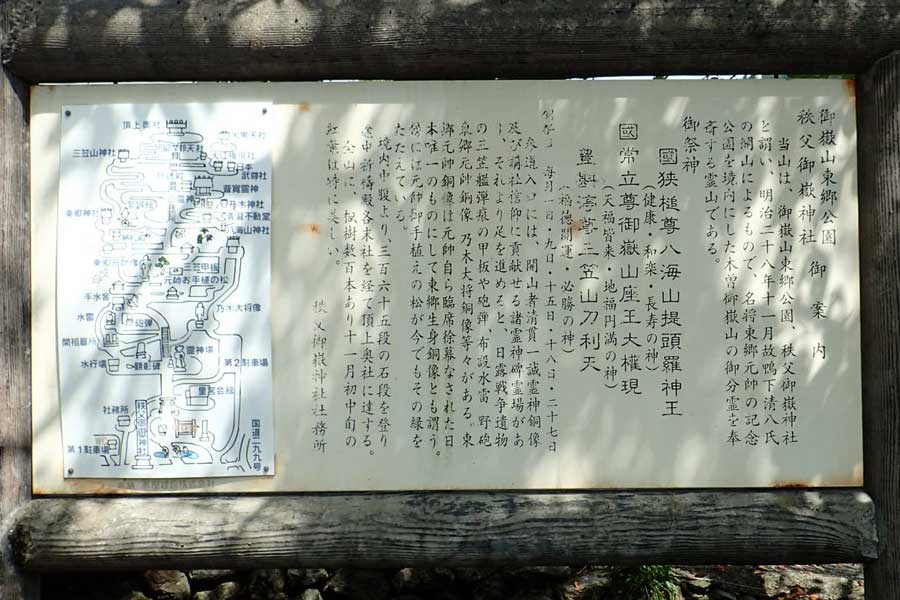 御嶽山東郷公園
秩父御嶽神社 御案内
当山は、御嶽山東郷公園、秩父御嶽神社
と謂い、明治二十八年十一月故鴨下清八氏
の開山によるもので、名将東郷元帥の記念
公園を境内にした木曽御嶽山の御分霊を奉
斎する霊山である。
御祭神
國狭槌尊八海山提頭羅神王
(健康・和楽・長寿の神)
國常立尊御嶽山座王大權現
(天福皆来・地福円満の神)
豊斟渟尊三笠山刀利天
(福徳開運・必勝の神)
毎月一日・九日・十五日・十八日・二十七日
参道入口には、開山者清貫一誠霊神銅像
及び講社信仰に貢献せる諸霊神碑霊場があ
り、それより足を進めると、日露戦争遺物
の三笠艦弾痕の甲板や砲弾、布設水雷 野砲
東郷元帥銅像 乃木大将銅像等々がある。東
郷元帥銅像は元帥自ら臨席徐幕なされた日
本唯一のものにして東郷生身銅像とも謂う。
傍には元帥御手植えの松が今でもその縁を
たたえている。
境内中腹より、三百六十五段の石段を登り
途中祈祷殿各末社を経て頂上奥社に達する。
全山に、楓樹数百本あり十一月初中旬の
紅葉は特に美しい。
秩父御嶽神社社務所
頂上奥社
三笠山神社
日本
武尊社
普寛霊神
乃木神社
清瀧不動堂
八海山神社
東郷神社
東郷元帥像
三笠甲板
元帥お手植の松
手水舎
水雷
砲弾
乃木大将像
開祖墓所
霊神場
水行場
顕彰碑
第2駐車場
里宮会館
社務所
秩父御嶽神社
第1駐車場
国道二九九号